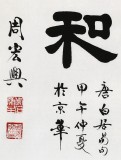 和
唐白居易句
甲午仲夏
於京華
周宏興